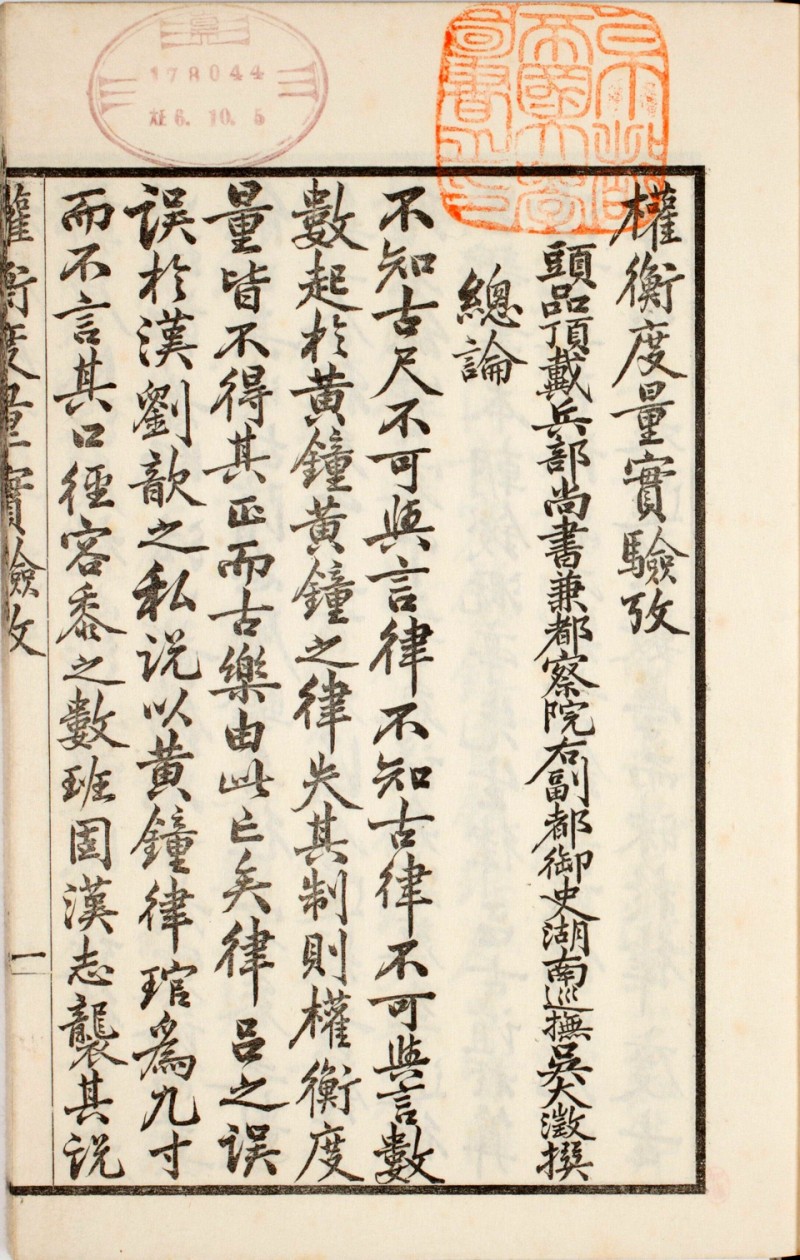 權衡度量實驗攷
頭品頂戴兵部尚書兼都察院右副都御史湖南巡撫吳大澂撰
總論
不知古尺不可與言律不知古律不可與言數
數起於黃鐘黃鐘之律失其制則權衡度
量皆不得其正而古樂由此亡矣律呂之誤
誤於漢劉歆之私説以黃鐘律琯爲九寸
而不言其口徑容黍之數班固漢志襲其説
權衡度量實驗攷
一
178044
大正6.10.5
京都帝國大學圖書之印